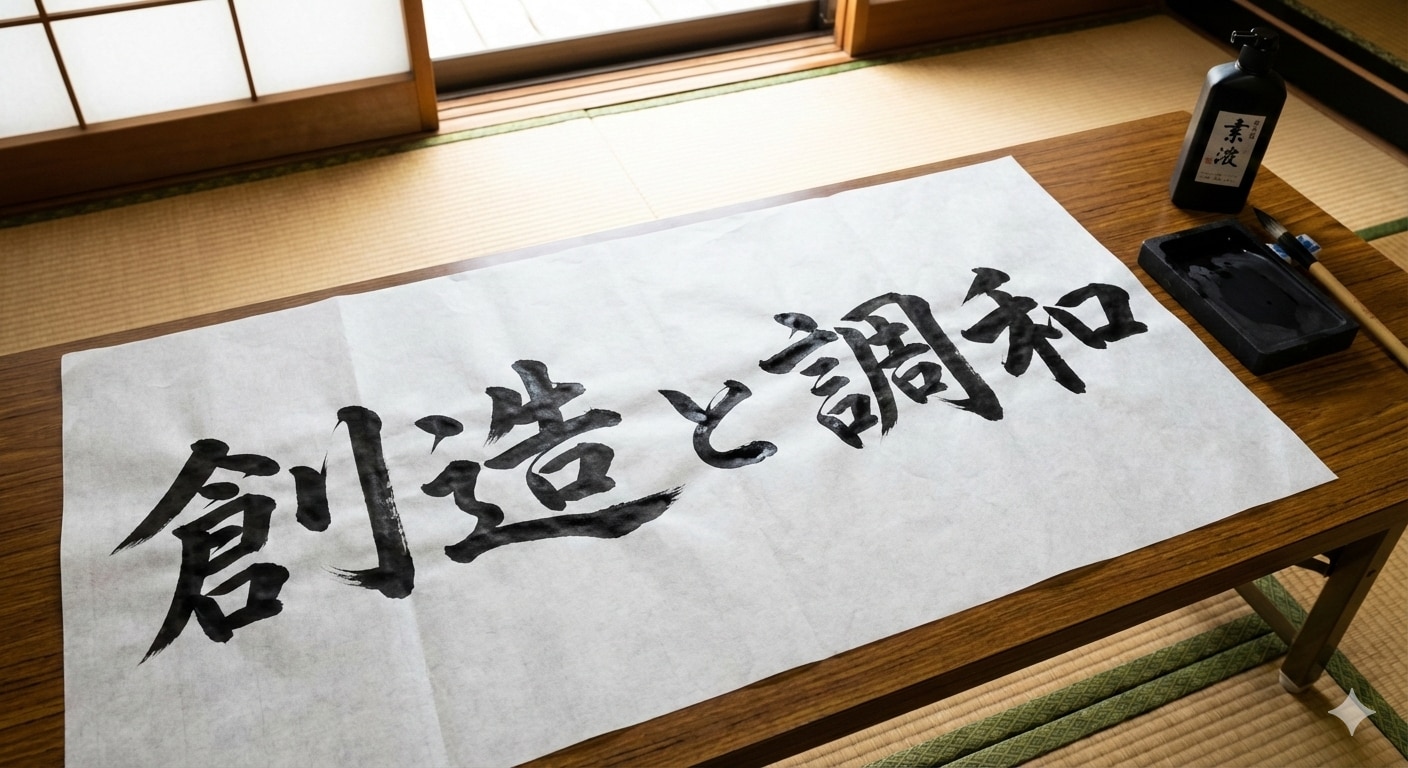 創造と調和
素液